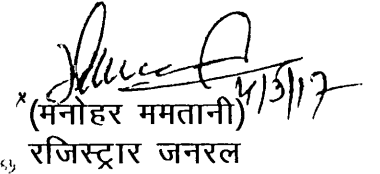 4/5/17
(मनोहर ममतानी)
रजिस्ट्रार जनरल